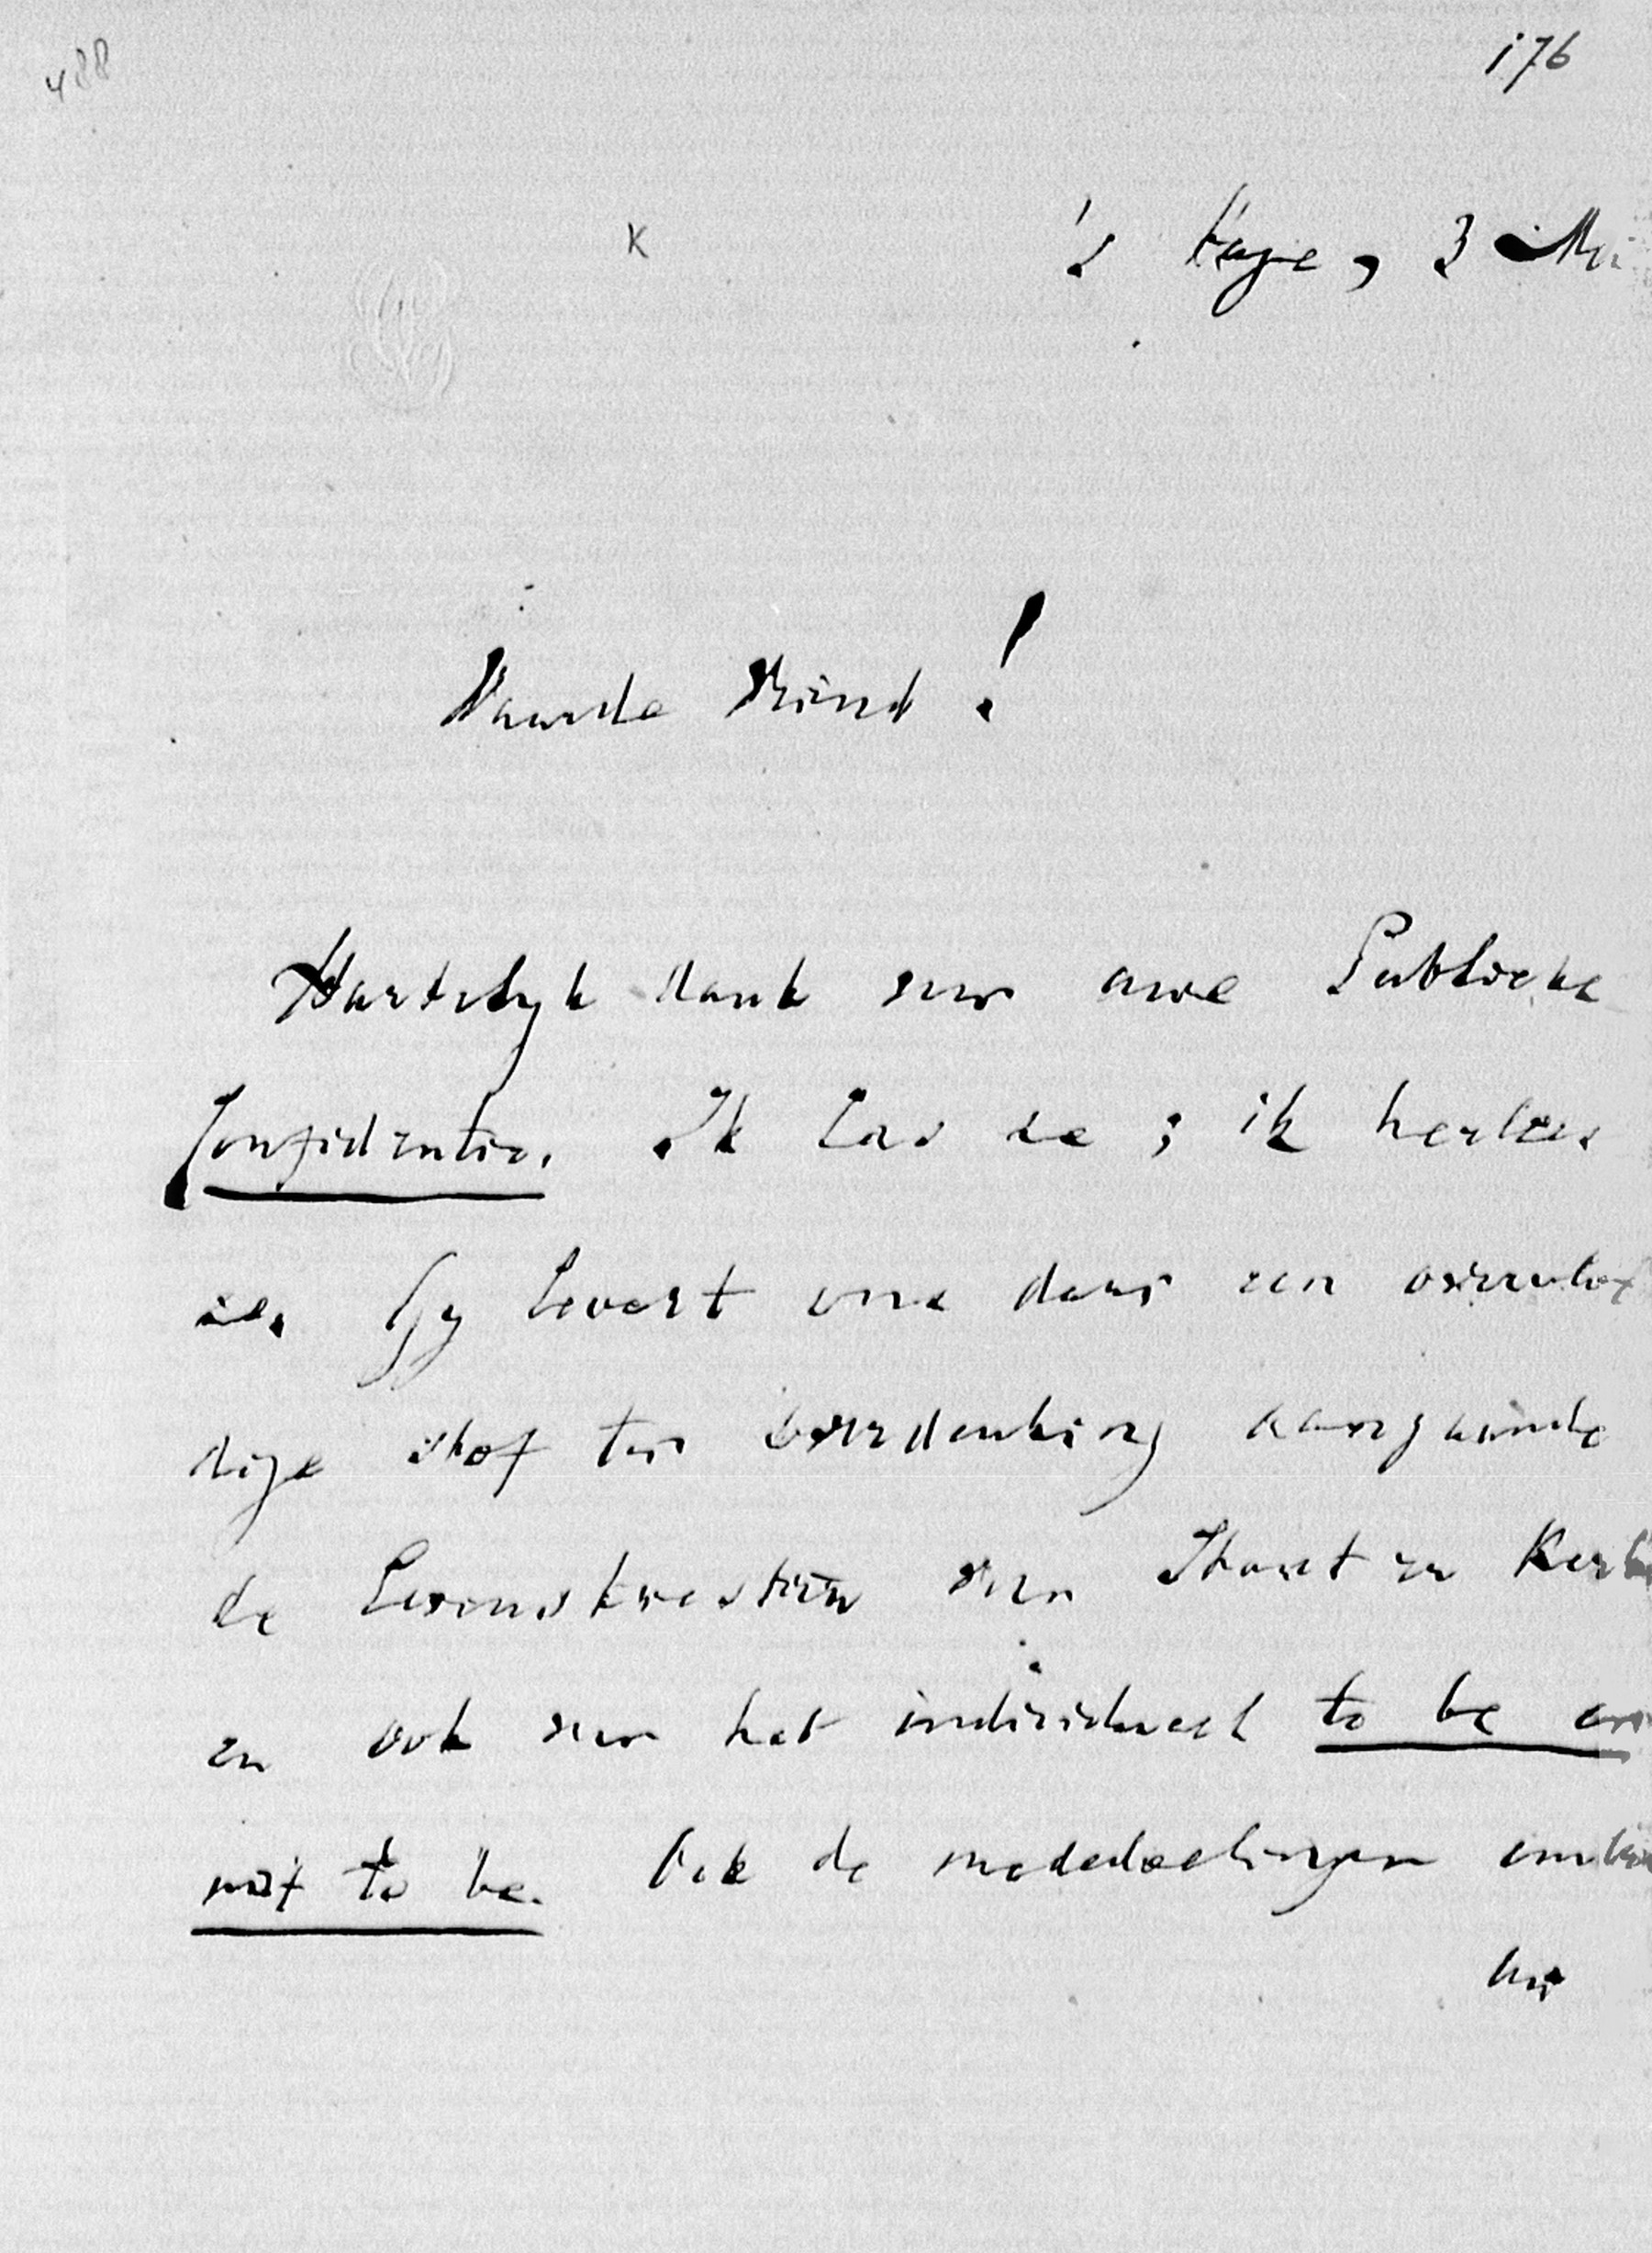 488
176
K
's Hage, 3 Mei
Waarde Vriend!
Hartelyk dank voor uwe Publieke
Confidentie. Ik las ze; ik herlees
ze. Gy levert ons daar een overvloe
dige stof ter overdenking aangaande
de Levenskwestien van Staat en Kerk
en ook van het individueel to be or
not to be. Ook de mededeelingen om